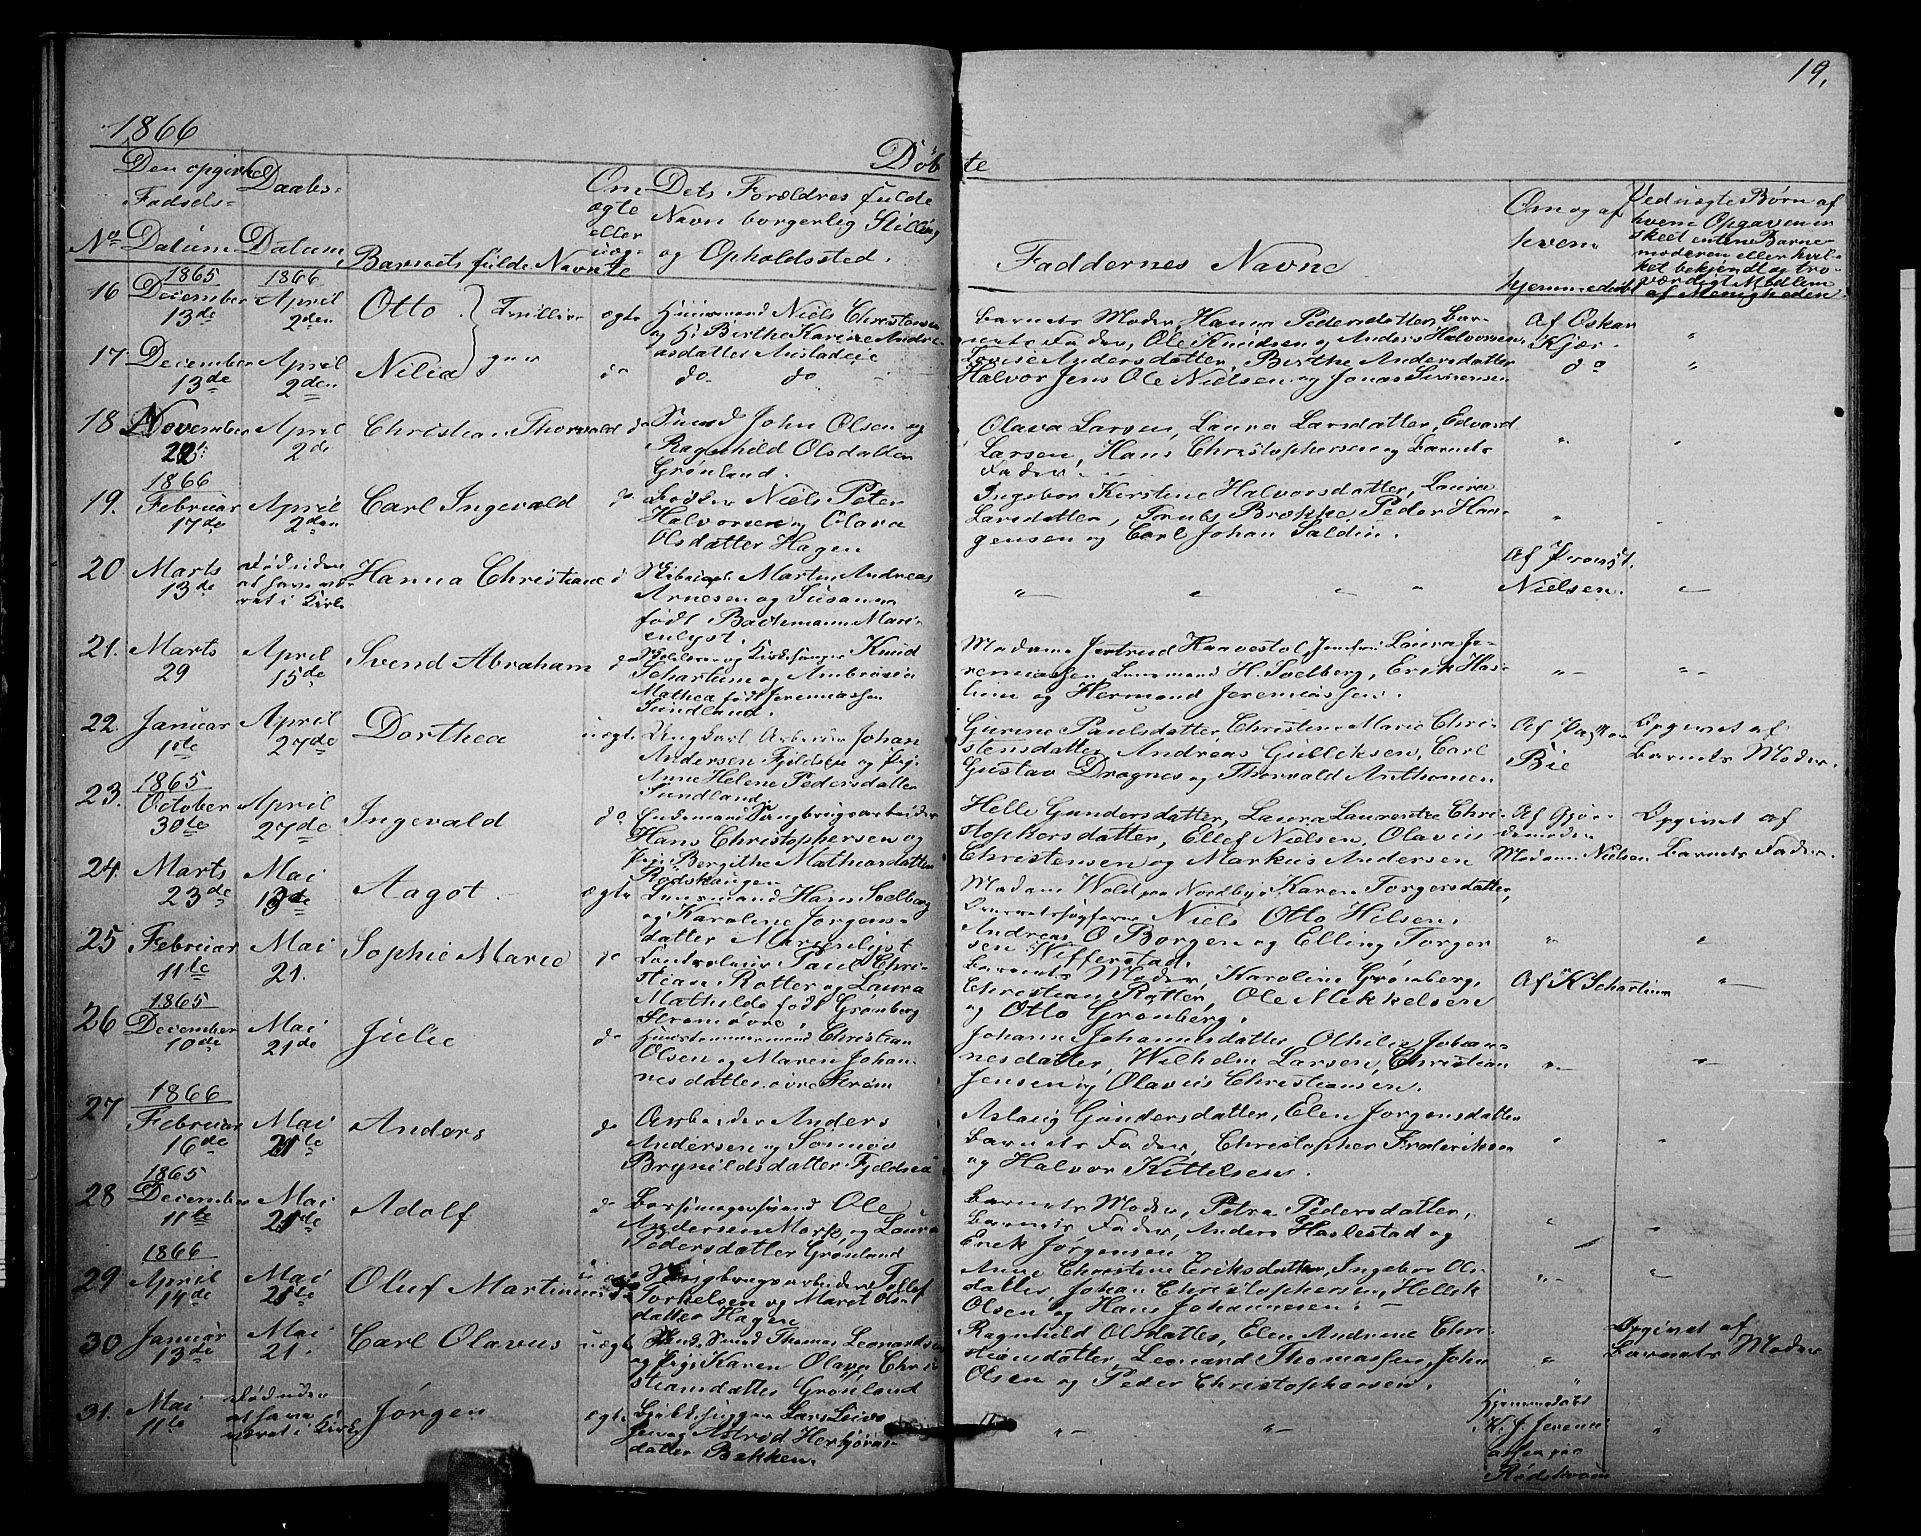 19.
1866
Döbte
No
Den opgivne Fødsels-Datum
Daabs-Datum
Barnets fulde Navn
Om ægte eller uægte
Dets Forældres fulde Navn borgerlig Stilling og Opholdssted.
Faddernes Navne
Om og af hvem hjemmedøbt
Ved uægte Børn af hvem Opgaven er skeet enten Barnemoderen eller hvilket bekjendt og troværdigt Medlem af Menigheden
16 1865 December 13de 1866 April 2den Otto Tvillinger ægte Huusmand Niels Christensen og H. Birthe Karine Andreasdatter
Barnets Moder, Hanna Pedersdatter, Barnets Fader, Ole Knudsen og Anders Halvorsen Af Oskar Kjær "
17 December 13de April 2den Nilia do do do
Lovise Andersdatter, Birthe Andersdatter Halvor Jens Ole Nielsen og Jonas Sørensen do "
18 November 22 April 2de Christian Thorvald do Smed John Olsen og Ragnhild Olsdatter Grønland.
Olava Larsen, Laura Larsdatter, Edvard Larsen, Hans Christophersen og Barnets Fader " "
19. 1866 Februar 17de April 2den Carl Ingevald do Niels Peter Halvorsen og Olava Olsdatter Hagen
Ingebor Kirstine Halvorsdatter, Laura Larsdatter, Brekke Peder Haagensen og Carl Johan Saldin. " "
20 Marts 13de Død uden at have været i Kirke Hanna Christiane d Skibscapt. Marten Andreas Arnesen og Susanna født Marienlyst
" " " " Af Provst Nielsen. "
21. Marts 29 April 15de Svend Abraham do Skolelærer og Kirkesanger Knud Schartum og Ambrosia Mathea født Jeremiassen Sundland.
Madame Jertrud Haavestol Jomfru Laura Jeremiassen, Lensmand H. Soelberg, Erik Has- lum og Hermand Jeremiassen. " "
22. Januar 1ste April 27de Dorthea uægte Ungkarl Arbeider Johan Andersen Fjeldsøe og Pige Anne Helene Pedersdatter Sundland
Gurine Paulsdatter, Christine Marie Christensdatter, Andreas Gulliksen, Carl Gustav Dragnes og Thorvald Anthonsen Af Pastor Bie Opgivet af Barnets Moder.
23. 1865 October 30te April 27de Ingevald do Hans Christophersen og Pige Bergithe Mathiasdatter Rødskaugen
Helle Gundersdatter, Laura Laurentze Christophersdatter, Ellef Nielsen, Olavus Christensen og Markus Andersen Af Gjordemoder Madame Nielsen Opgivet af Barnets Fader.
24. Marts 23de Mai Aagot ægte Lensmand Hans Soelberg og Karoline Jørgensdatter Marienlyst
Madam Wold paa Nordbye Karen Torgersdatter, Niels Otto Hilsen, Andreas O Borgen og Elling Torgersen Wefferstad. " "
25 Februar 11te Mai 21. Sophie Marie do Paul Christian Rotter og Laura Mathilde født Grønberg
Barnets Moder, Karoline Grønberg, Christian Rotter, Ole Mikkelsen og Otto Grønberg. Af K Schartum "
26 1865 December 10de Mai 21de Julie do Huustømmermand Christian Olsen og Maren Johannesdatter øvre Strøm
Johanne Johannesdatter, Othilie Johannesdatter, Wilhelm Larsen, Christian Jensen og Olavus Christiansen. " "
27 1866 Februar 16de Mai 21te Anders do Arbeider Anders Andersen og Brynildsdatter Fjeldsøe
Aslaug Gundersdatter, Elen Jørgensdatter Barnets Fader, Christopher Frederiksen og Halvor Kittelsen. " "
28 1865 December 11te Mai 21de Adolf do Ole Andersen og Laura Pedersdatter Grønland
Barnets Moder, Petra Pedersdatter, Barnets Fader, Anders Haslestad og Erik Jørgensen " "
29 1866 April 14de Mai 21te Oluf Martinius Tollef Torkelsen og Maret Olsdatter Hagen
Anne Christine Eriksdatter, Ingebor Olsdatter, Johan Christophersen, Hellik Olsen og Hans Johannesen. " "
30 Januar 13de Mai 21. Carl Olavus uægte Smed Thomas Leonardsen og Pige Karen Olava Christiansdatter Grønland
Ragnhild Olsdatter, Elen Andrine Christiansdatter, Leonard Thomassen, John Olsen og Peder Christophersen. " Opgivet af Barnets Moder
31. Mai 11te Død uden at have været i Kirke Jørgen ægte Lars og Astrid Herbjørnsdatter Bakken.
" " Hjemmedøbt "